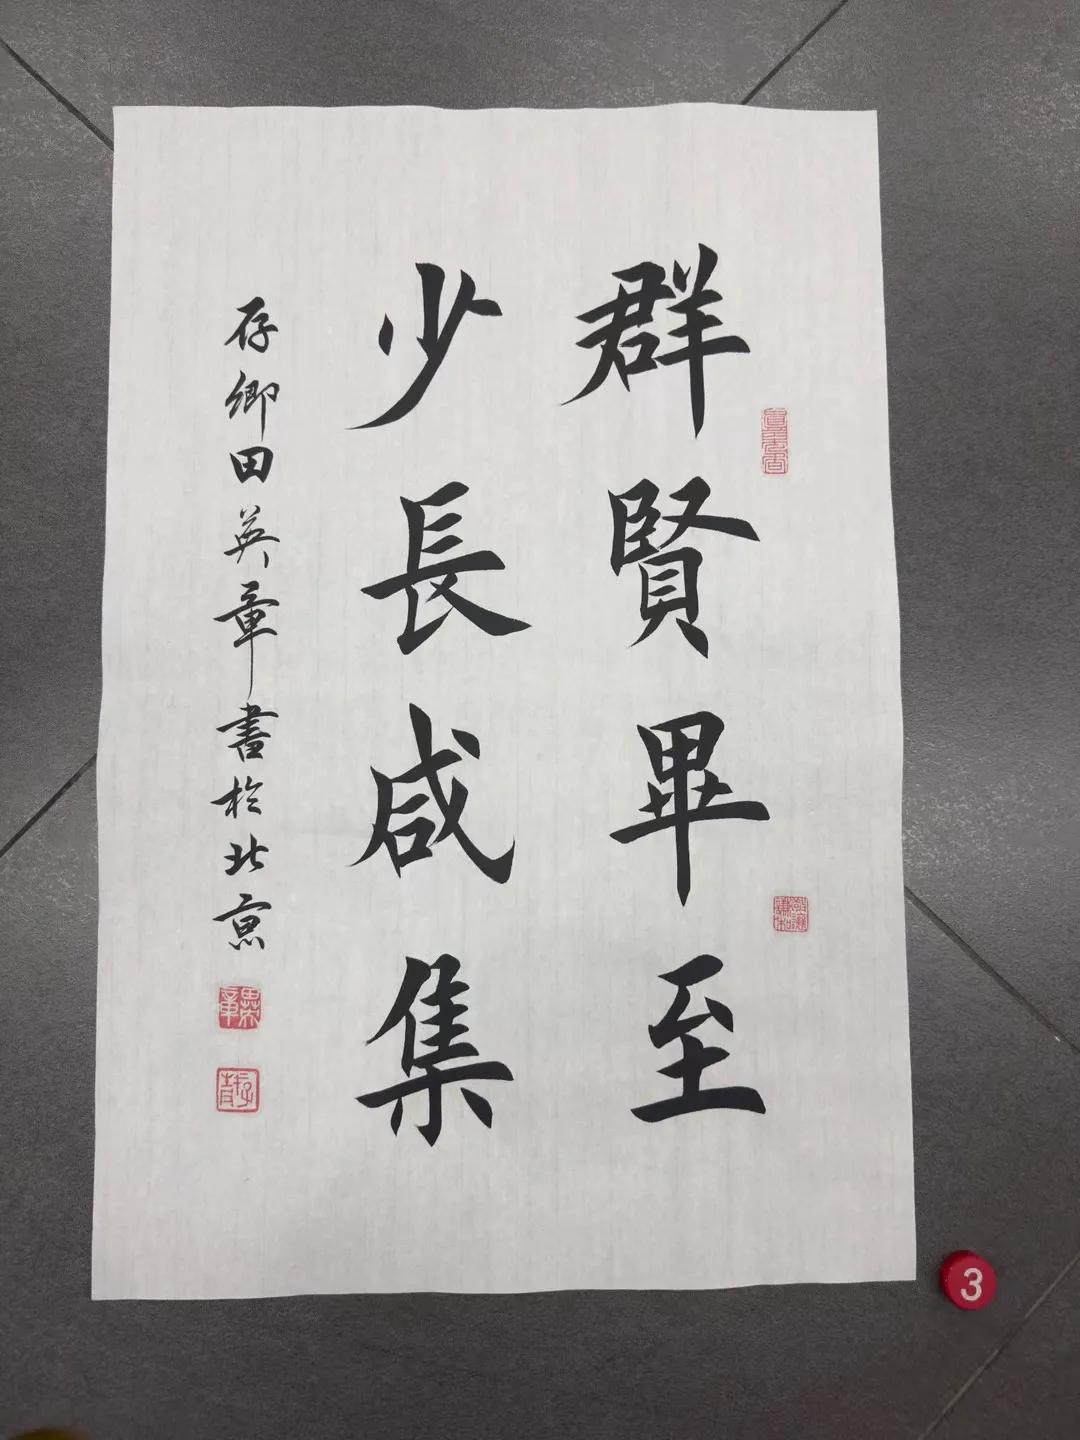 群賢畢至
少長咸集
存卿田英章書於北京
英章
3